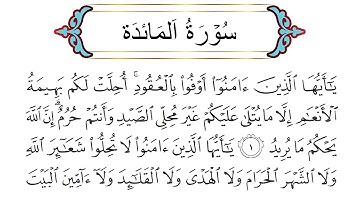 سُورَةُ المَائدَة
يَٰٓأَيُّهَا ٱلَّذِينَ ءَامَنُوٓا۟ أَوْفُوا۟ بِٱلْعُقُودِ ۚ أُحِلَّتْ لَكُم بَهِيمَةُ
ٱلْأَنْعَٰمِ إِلَّا مَا يُتْلَىٰ عَلَيْكُمْ غَيْرَ مُحِلِّى ٱلصَّيْدِ وَأَنتُمْ حُرُمٌ ۗ إِنَّ ٱللَّهَ
يَحْكُمُ مَا يُرِيدُ ١ يَٰٓأَيُّهَا ٱلَّذِينَ ءَامَنُوا۟ لَا تُحِلُّوا۟ شَعَٰٓئِرَ ٱللَّهِ
وَلَا ٱلشَّهْرَ ٱلْحَرَامَ وَلَا ٱلْهَدْىَ وَلَا ٱلْقَلَٰٓئِدَ وَلَآ ءَآمِّينَ ٱلْبَيْتَ